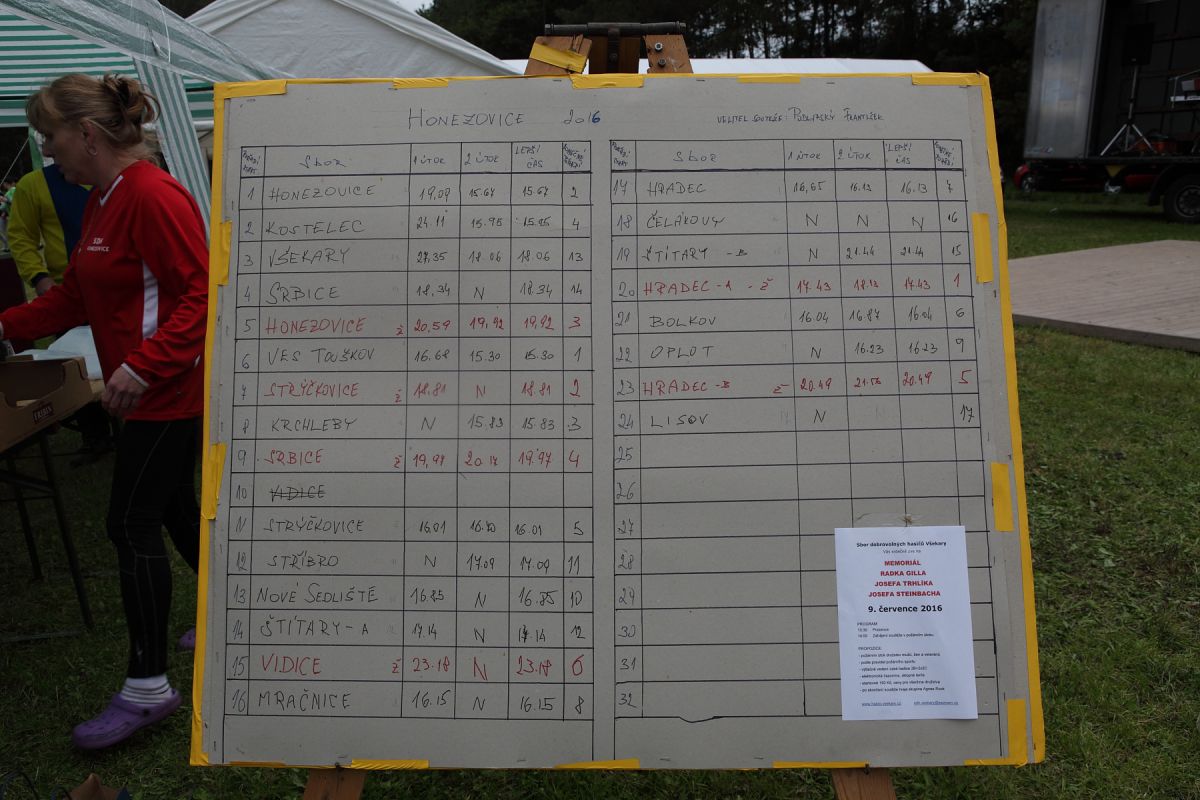 HONEZOVICE 2016
VELITEL SOUTĚŽE: PODLIPSKÝ FRANTIŠEK
SBOR 1 ÚTOK 2 ÚTOK LEPŠÍ ČAS
1 HONEZOVICE 19,09 15.67 15.67 2
2 KOSTELEC 24.11 15.95 15.95 4
3 VŠEKARY 27,35 18.06 18.06 13
4 SRBICE 18,34 N 18.34 14
5 HONEZOVICE ž 20,59 19,92 19,92 3
6 VES TOUŠKOV 16.68 15.30 15.30 1
7 STRÝČKOVICE ž 18.81 N 18.81 2
8 KRCHLEBY N 15.83 15.83 3
9 SRBICE ž 19,97 20.17 19.97 4
10 VIDICE
11 STRÝČKOVICE 16.01 16.01 5
12 STŘÍBRO N 17.09 17.09 11
13 NOVÉ SEDLIŠTĚ 16.85 N 16.85 10
14 ŠTÍTARY-A 17.14 N 17.14 12
15 VIDICE ž 23.18 N 23.18 6
16 MRAČNICE 16.15 N 16.15 8
SBOR 1 ÚTOK 2 ÚTOK LEPŠÍ ČAS
17 HRADEC 16,65 16.13 16.13 7
18 ČELÁKOVY N N N 16
19 ŠTÍTARY -B N 21.44 21.44 15
20 HRADEC-A - ž 17.43 18.12 17.43 1
21 BOLKOV 16.04 16.87 16.04 6
22 OPLOT N 16.23 16.23 9
23 HRADEC-B ž 20.49 20.49 5
24 LISOV N 17
25
26
27
28
29
30
31
32
Sbor dobrovolných hasičů Všekary
Vás srdečně zve na
MEMORIÁL
RADKA GILLA
JOSEFA TRHLÍKA
JOSEFA STEINBACHA
9. července 2016
PROGRAM
Prezence
Zahájení soutěže v požárním útoku
PROPOZICE
- požární útok družstev mužů, žen a veteránů
- podle pravidel požárního sportu
SDH
HONEZOVICE